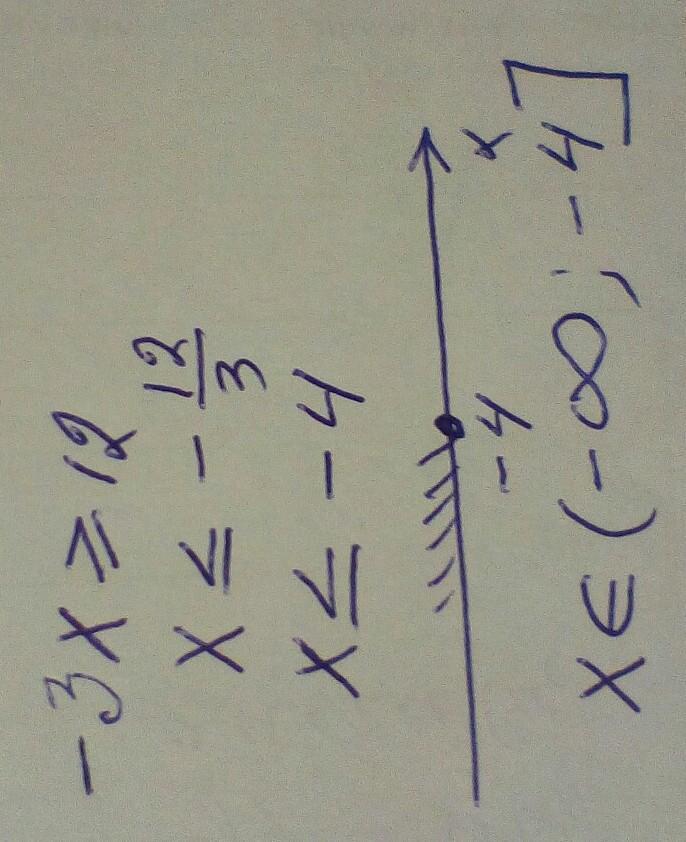 -3x ≥ 12
x ≤ - 12/3
x ≤ - 4
-4 x
x ∈ (-∞; -4]